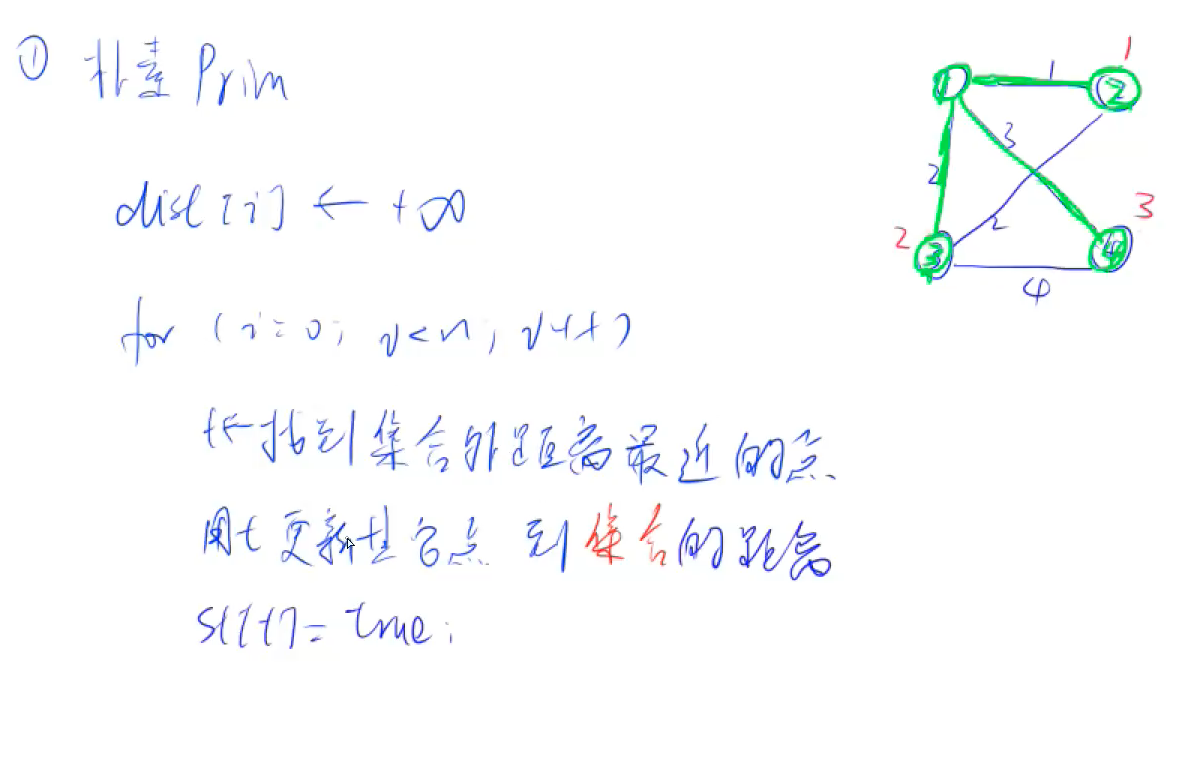 ① 朴素 Prim
dist[i] ← +∞
for (i=0; i<n; i++)
t←找到集合外距离最近的点
用t更新其它点到集合的距离
st[t]=true;
1
1
①
②
3
2
3
2
2
③
④
4